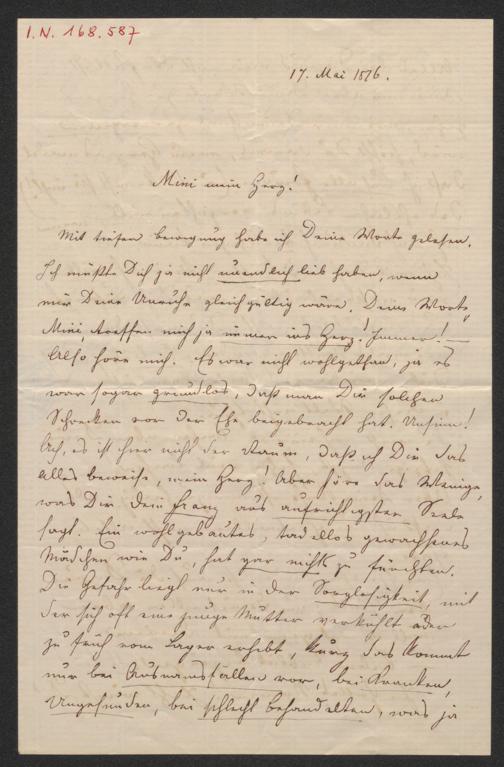 I.N. 168.587
17. Mai 1876.
Mini mein Herz!
Mit tiefer Bewegung habe ich Deine Worte gelesen.
Ich müßte Dich ja nicht unendlich lieb haben, wenn
mir Deine Unruhe gleichgültig wäre. Deine Worte,
Mini, treffen mich ja immer ins Herz! Immer! —
Also höre mich. Es war nicht wohlgethan, ja es
war sogar grundlos, daß man Dir solchen
Schrecken vor der Ehe beigebracht hat. Unsinn!
Ach, es ist hier nicht der Raum, daß ich Dir das
alles beweise, mein Herz! Aber höre das Wenige,
was Dir Dein Franz aus aufrichtigster Seele
sagt. Ein wohlgebautes, tadellos gewachsenes
Mädchen wie Du, hat gar nichts zu fürchten.
Die Gefahr liegt nur in der Sorglosigkeit, mit
der sich oft eine junge Mutter verkühlt oder
zu früh vom Lager erhebt, kurz das kommt
nur bei Ausnamsfällen vor, bei Kranken,
Ungesunden, bei schlecht behandelten, was ja